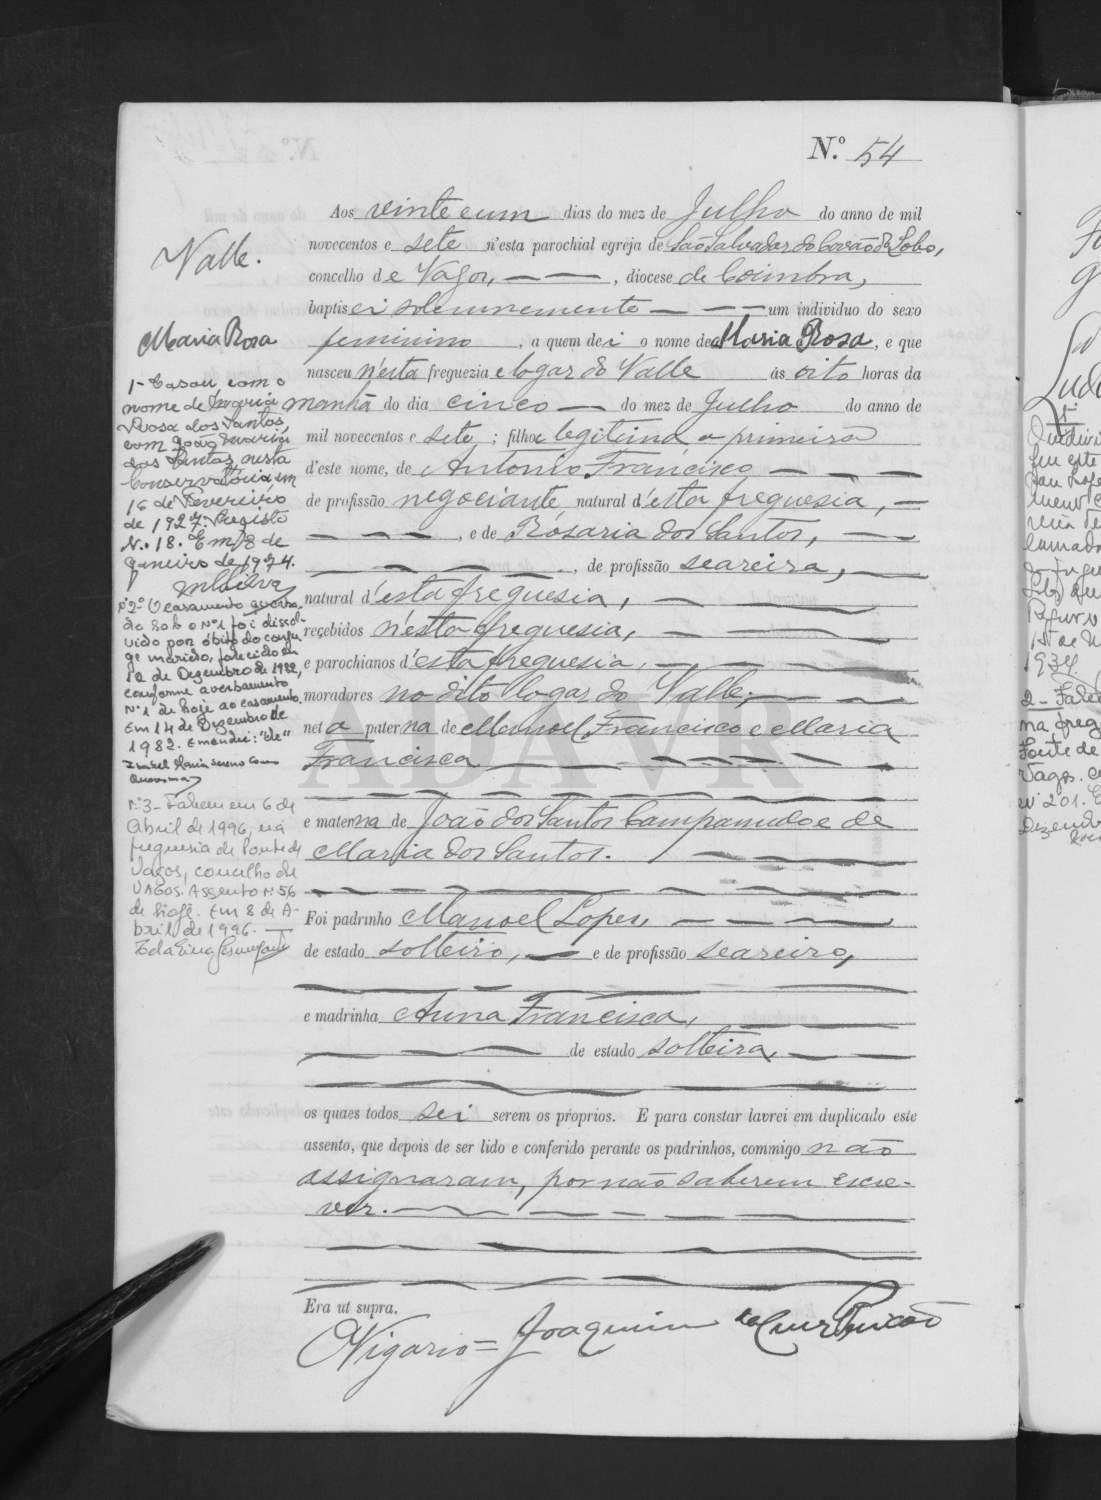 N.º 54
Aos vinte e um dias do mez de Julho do anno de mil
novecentos e sete n'esta parochial egreja de São Salvador do Covão do Lobo,
concelho de Vagos, diocese de Coimbra,
baptisei solemnemente um individuo do sexo
feminino, a quem dei o nome de Maria Rosa, e que
nasceu n'esta freguezia e logar do Valle ás oito horas da
manhã do dia cinco do mez de Julho do anno de
mil novecentos e sete; filha legitima a primeira
d'este nome, de Antonio Francisco
de profissão negociante, natural d'esta freguesia,
, e de Rosaria dos Santos,
, de profissão seareira,
natural d'esta freguesia,
recebidos n'esta freguesia,
e parochianos d'esta freguesia,
moradores no dito logar do Valle;
neta paterna de Manoel Francisco e Maria
Francisca
e materna de João dos Santos Campanudo e de
Maria dos Santos.
Foi padrinho Manoel Lopes,
de estado solteiro, e de profissão seareiro,
e madrinha Anna Francisca,
de estado solteira,
os quaes todos sei serem os proprios. E para constar lavrei em duplicado este
assento, que depois de ser lido e conferido perante os padrinhos, commigo não
assignaram, por não saberem escre-
ver.
Era ut supra.
O Vigario = Joaquim da Cruz
Valle.
Maria Rosa
1- Casou com o
nome de Maria
Rosa dos Santos,
com João Maria
dos Santos nesta
Conservatória em
16 de Fevereiro
de 1927. Registo
N.º 18. Em 18 de
Janeiro de 1974.
MSilva
Nº2º O casamento averba-
do sob o Nº1 foi dissol-
vido por óbito do conju-
ge marido, falecido em
12 de Dezembro de 1982,
conforme averbamento
Nº1 de hoje ao casamento.
Em 14 de Dezembro de
1982. Emendei: "de"
Isabel Maria
Nº3- Faleceu em 6 de
Abril de 1996, na
freguesia de Ponte de
Vagos, concelho de
VAGOS. Assento nº 56
de hoje. Em 8 de A-
bril de 1996.
ADAVR
1934
2- Faleceu
na freg
Fonte de
Vagos. C
nº 201. E
Dezemb